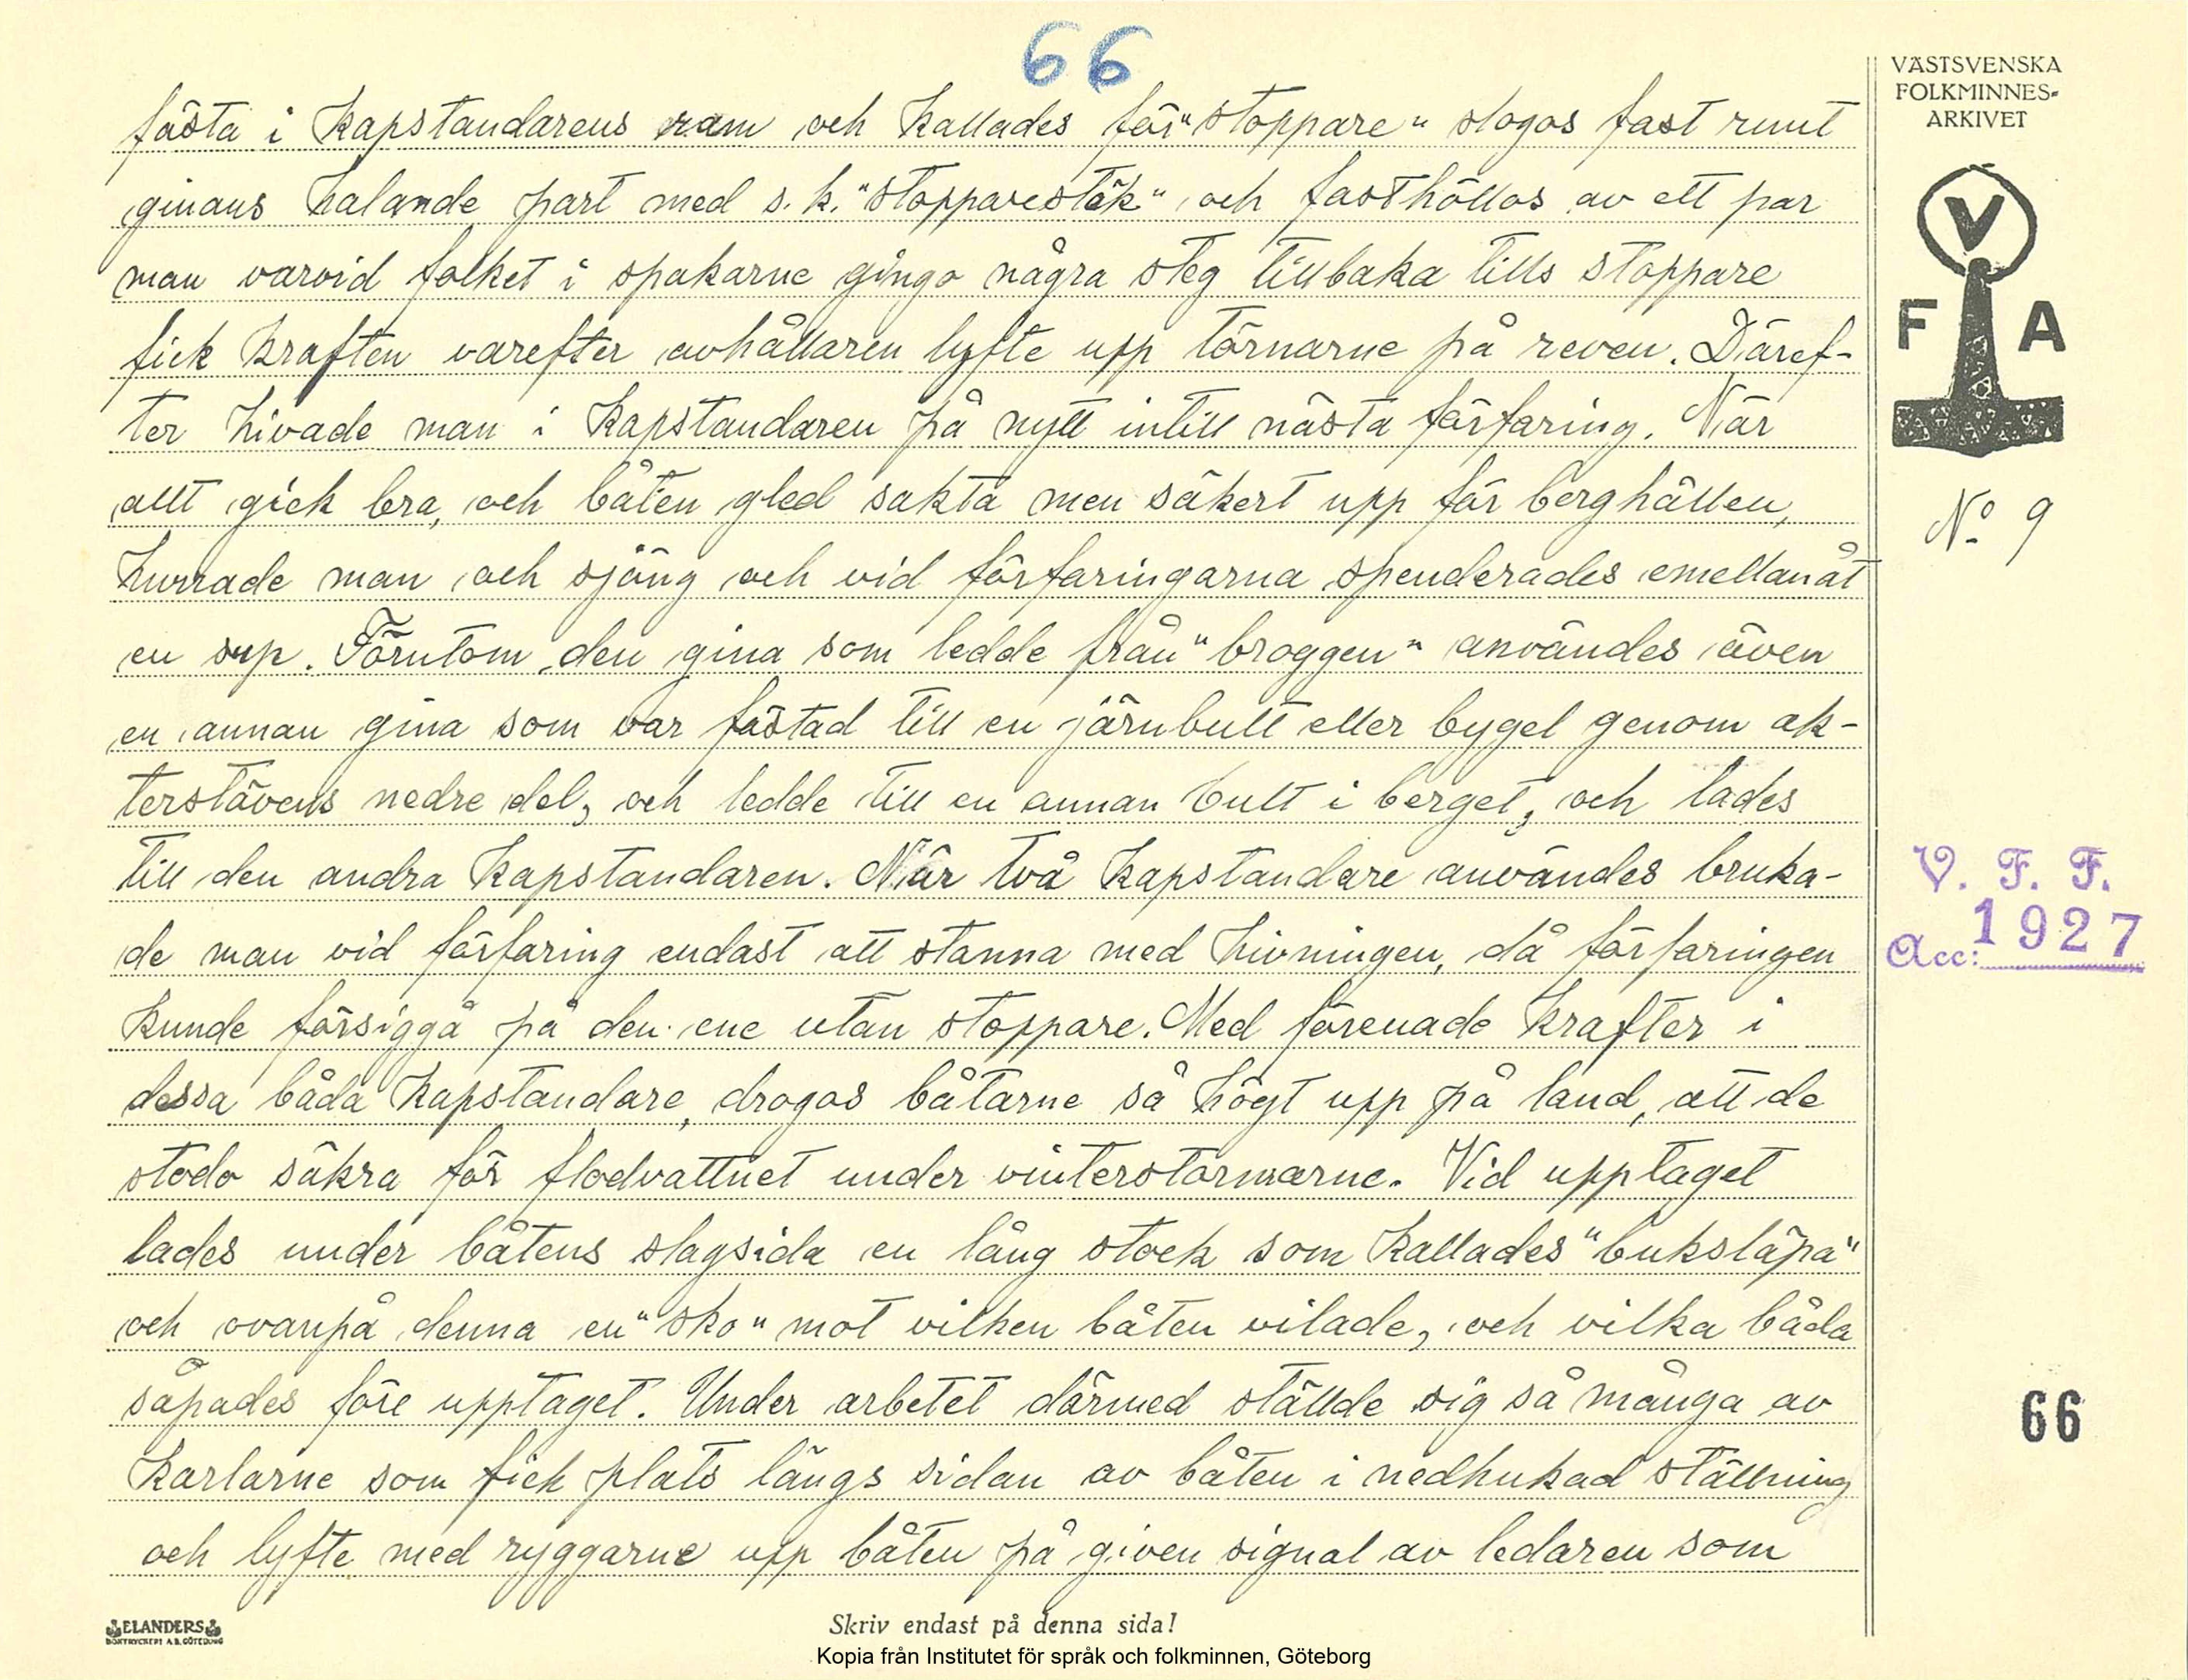 66
VÄSTSVENSKA
FOLKMINNES-
ARKIVET
V
F A
fästa i kapstandarens ram och kallades för "stoppare" slogos fast runt
ginans halande part med s. k. "stopparestek" och fasthöllos av ett par
man varvid folket i spakarne gingo några steg tillbaka tills stoppare
fick kraften varefter avhållaren lyfte upp törnarne på reven. Däref-
ter hivade man i kapstandaren på nytt intill nästa förfaring. När
allt gick bra, och båten gled sakta men säkert upp för berghällen,
hurrade man och sjöng och vid förfaringarna spenderades emellanåt
en sup. Förutom den gina som ledde från "broggen" användes även
en annan gina som var fästad till en järnbult eller bygel genom ak-
terstävens nedre del, och ledde till en annan bult i berget, och lades
till den andra kapstandaren. När två kapstandare användes bruka-
de man vid förfaring endast att stanna med hivningen, då förfaringen
kunde försiggå på den ene utan stoppare. Med förenade krafter i
dessa båda kapstandare, drogos båtarne så högt upp på land, att de
stodo säkra för flodvattnet under vinterstormarne. Vid upptaget
lades under båtens slagsida en lång stock som kallades "buksläpa"
och ovanpå denna en "sko" mot vilken båten vilade, och vilka båda
såpades före upptaget. Under arbetet därmed ställde sig så många av
karlarne som fick plats längs sidan av båten i nedhukad ställning
och lyfte med ryggarne upp båten på given signal av ledaren som
No 9
V. F. F.
Acc: 1927
66
ELANDERS
BOKTRYCKERI A.B. GÖTEBORG
Skriv endast på denna sida!
Kopia från Institutet för språk och folkminnen, Göteborg